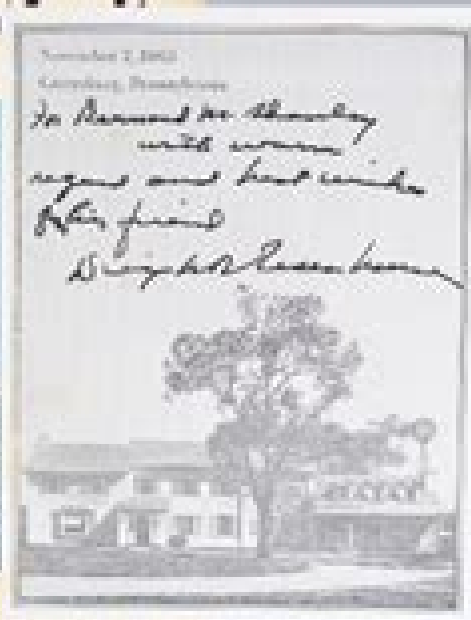 November 7, 1963
Gettysburg, Pennsylvania
For Bernard M. Shanley
with warm
regard and best wishes
of his friend
Dwight D Eisenhower